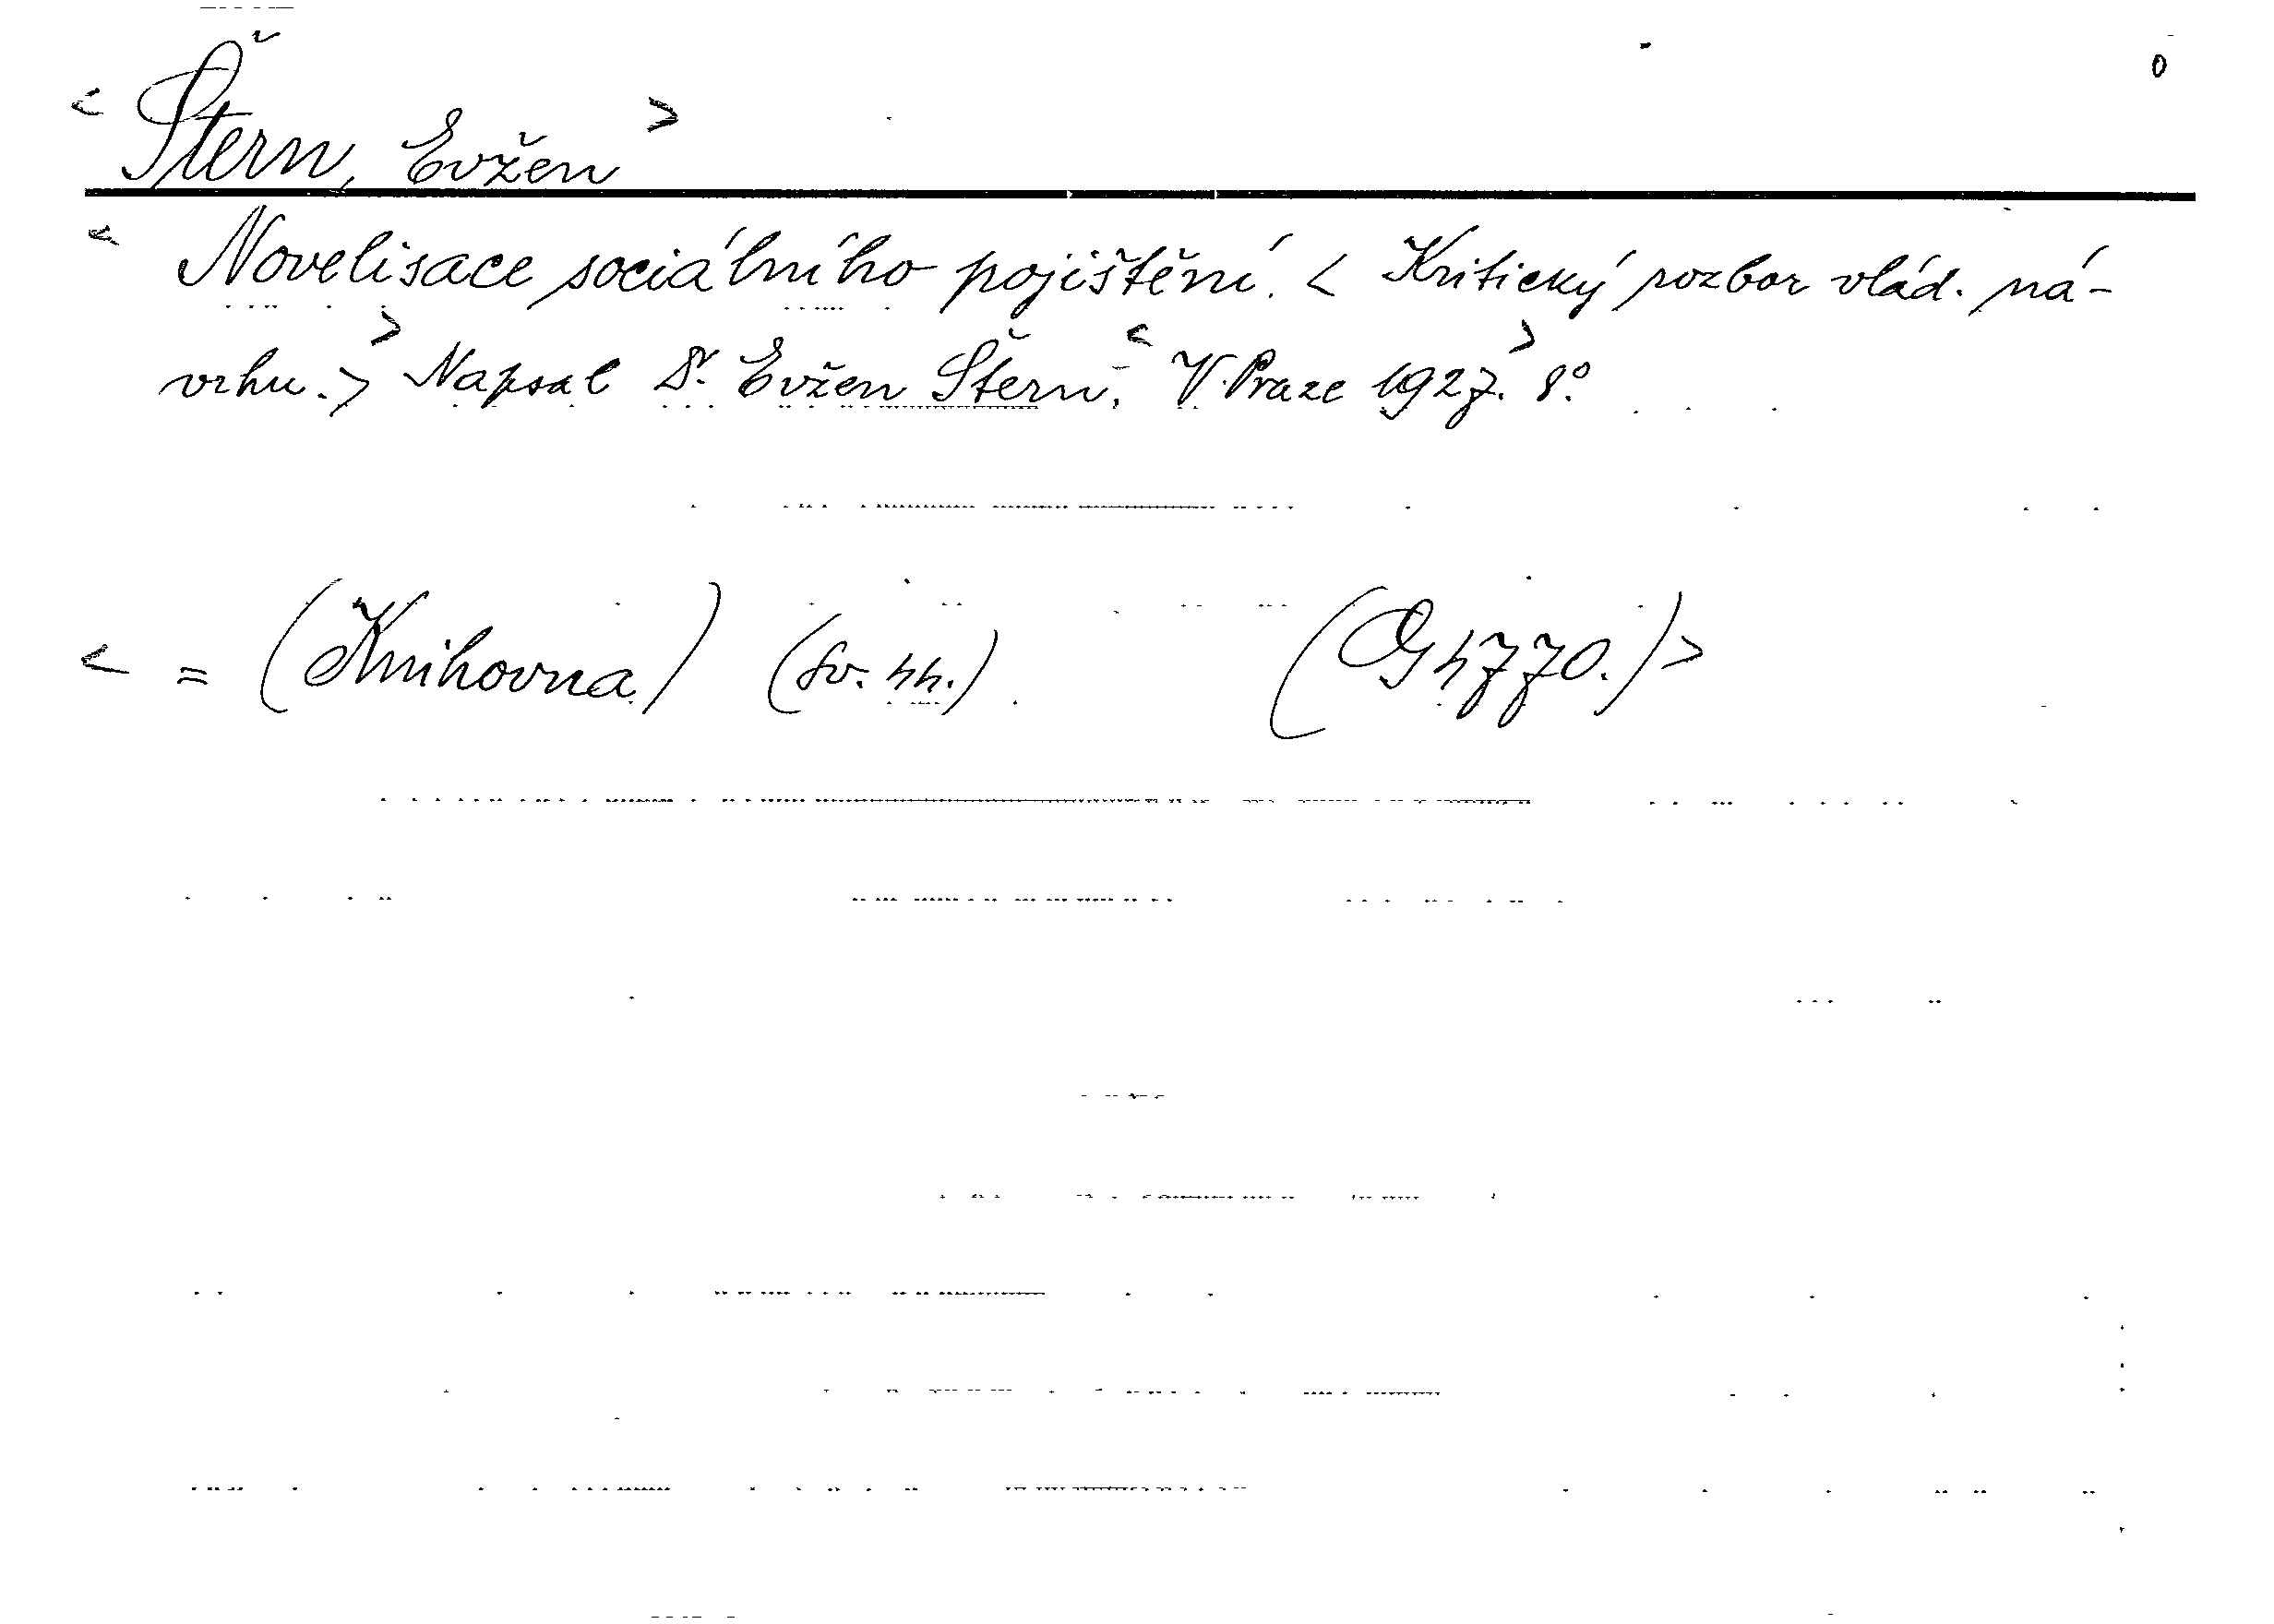 0
< Štern, Evžen >
< Novelisace sociálního pojištění. < Kritický rozbor vlád. ná-
vrhu. > > Napsal Dr. Evžen Štern. < V Praze 1927. > 8°.
< = (Knihovna) (sv. 44.) (G 4770.) >